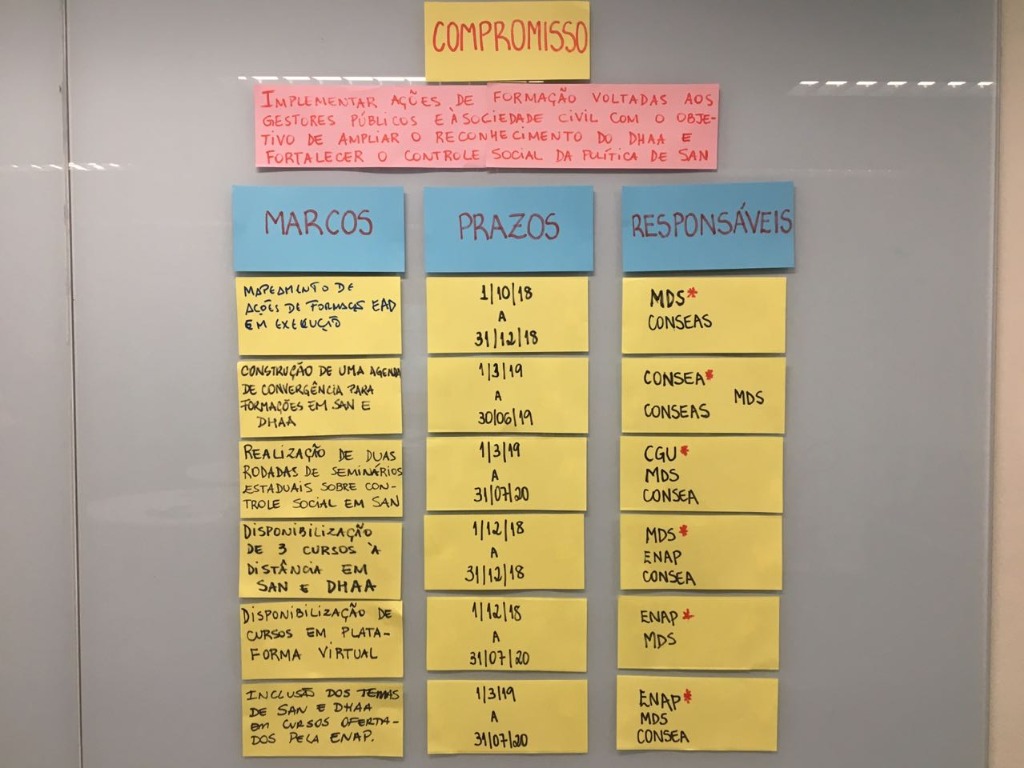 COMPROMISSO
IMPLEMENTAR AÇÕES DE FORMAÇÃO VOLTADAS AOS
GESTORES PÚBLICOS E À SOCIEDADE CIVIL COM O OBJE-
TIVO DE AMPLIAR O RECONHECIMENTO DO DHAA E
FORTALECER O CONTROLE SOCIAL DA POLÍTICA DE SAN
MARCOS
PRAZOS
RESPONSÁVEIS
MAPEAMENTO DE
AÇÕES DE FORMAÇÃO EAD
EM EXECUÇÃO
1/10/18
A
31/12/18
MDS*
CONSEAS
CONSTRUÇÃO DE UMA AGENDA
DE CONVERGÊNCIA PARA
FORMAÇÕES EM SAN E
DHAA
1/3/19
A
30/06/19
CONSEA*
MDS
CONSEAS
REALIZAÇÃO DE DUAS
RODADAS DE SEMINÁRIOS
ESTADUAIS SOBRE CON-
TROLE SOCIAL EM SAN
1/3/19
A
31/07/20
CGU*
MDS
CONSEA
DISPONIBILIZAÇÃO
DE 3 CURSOS À
DISTÂNCIA EM
SAN E DHAA
1/12/18
A
31/12/18
MDS*
ENAP
CONSEA
DISPONIBILIZAÇÃO DE
CURSOS EM PLATA-
FORMA VIRTUAL
1/12/18
A
31/07/20
ENAP*
MDS
INCLUSÃO DOS TEMAS
DE SAN E DHAA
EM CURSOS OFERTA-
DOS PELA ENAP.
1/3/19
A
31/07/20
ENAP*
MDS
CONSEA